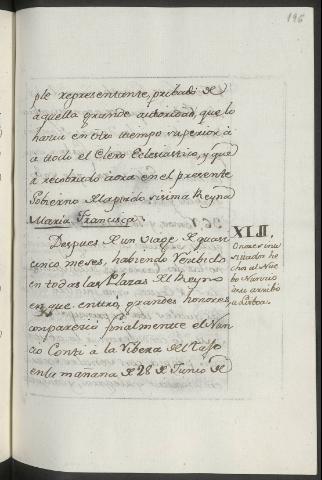 196
ple representante, pribado de
aquella grande autoridad, que lo
haria en otro tiempo superior à
à todo el Clero Eclesiastico, y que
à recobrado aora en el presente
Gobierno de la piadosisima Reyna
Maria Francisca.
Despues de un viage de quasi
cinco meses, habiendo
en todas las Plazas del Reyno
en que entrò, grandes honores,
comparesciò finalmente el Nun-
cio Conti a la Ribera del Tajo
en la mañana de 28 de Junio de
XLII.
Onores inu
sitados he
chos al Nue
bo Nuncio
en su arribo
a Lisboa.